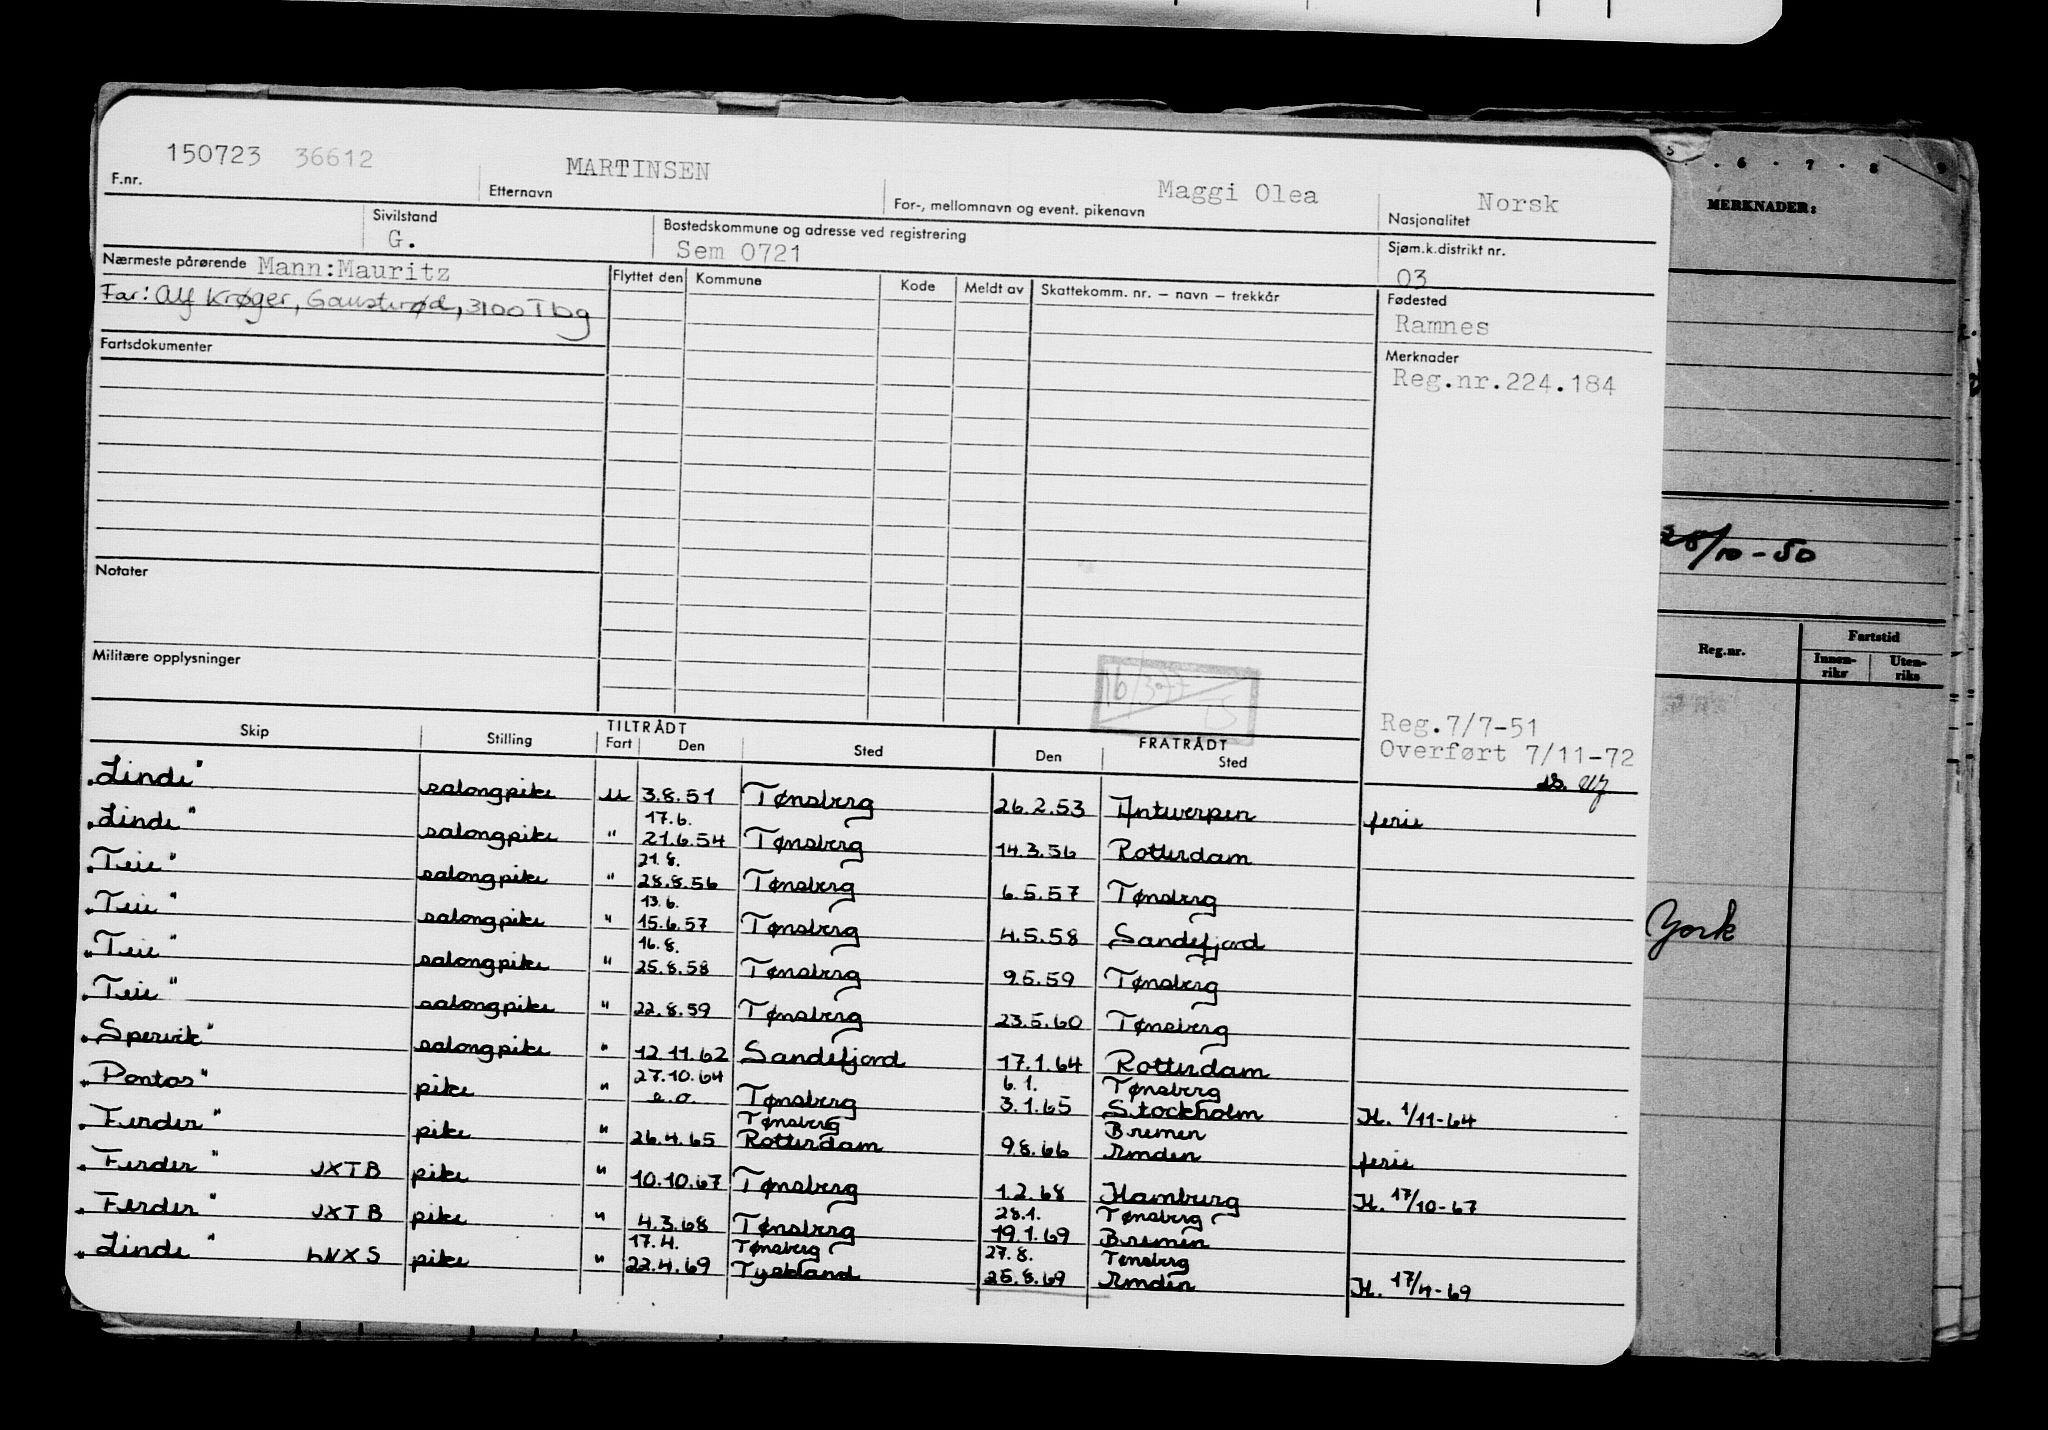 150723 36612 MARTINSEN Maggi Olea Norsk
F.nr. Etternavn For-, mellomnavn og event. pikenavn Nasjonalitet
Sivilstand Bostedskommune og adresse ved registrering Sjøm.k.distrikt nr.
G. Sem 0721 03
Nærmeste pårørende Mann:Mauritz Flyttet den Kommune Kode Meldt av Skattekomm. nr. – navn – trekkår Fødested
Far: Alf Krøger, 3100 Tbg Ramnes
Fartsdokumenter Merknader
Reg.nr.224.184
Notater
Militære opplysninger
Reg.7/7-51
Overført 7/11-72
TILTRÅDT FRATRÅDT
Skip Stilling Fart Den Sted Den Sted
"Linde" salongpike u 3.8.51 Tønsberg 26.2.53 Antwerpen ferie
17.6.
"Linde" salongpike " 21.6.54 Tønsberg 14.3.56 Rotterdam
21.8.
"Teie" salongpike " 28.8.56 Tønsberg 6.5.57 Tønsberg
13.6.
"Teie" salongpike " 15.6.57 Tønsberg 4.5.58 Sandefjord
16.8.
"Teie" salongpike " 25.8.58 Tønsberg 9.5.59 Tønsberg
"Teie" salongpike " 22.8.59 Tønsberg 23.5.60 Tønsberg
"Spervik" salongpike " 12.11.62 Sandefjord 17.1.64 Rotterdam
27.10.64 6.1. Tønsberg
"Pontos" pike " e.o. Tønsberg 3.1.65 Stockholm H. 1/11-64
Tønsberg Bremen
"Ferder" pike " 26.4.65 Rotterdam 9.8.66 Emden ferie
"Ferder" JXTB pike " 10.10.67 Tønsberg 1.2.68 Hamburg H. 17/10-67
28.1. Tønsberg
"Ferder" JXTB pike " 4.3.68 Tønsberg 19.1.69 Bremen
17.4. Tønsberg 27.8. Tønsberg
"Linde" LNXS pike " 22.4.69 Tyskland 25.8.69 Emden H. 17/4-69
5 . 6 . 7 . 8 9
MERKNADER:
28/10-50
Reg.nr. Fartstid
Innen-riks Uten-riks
York